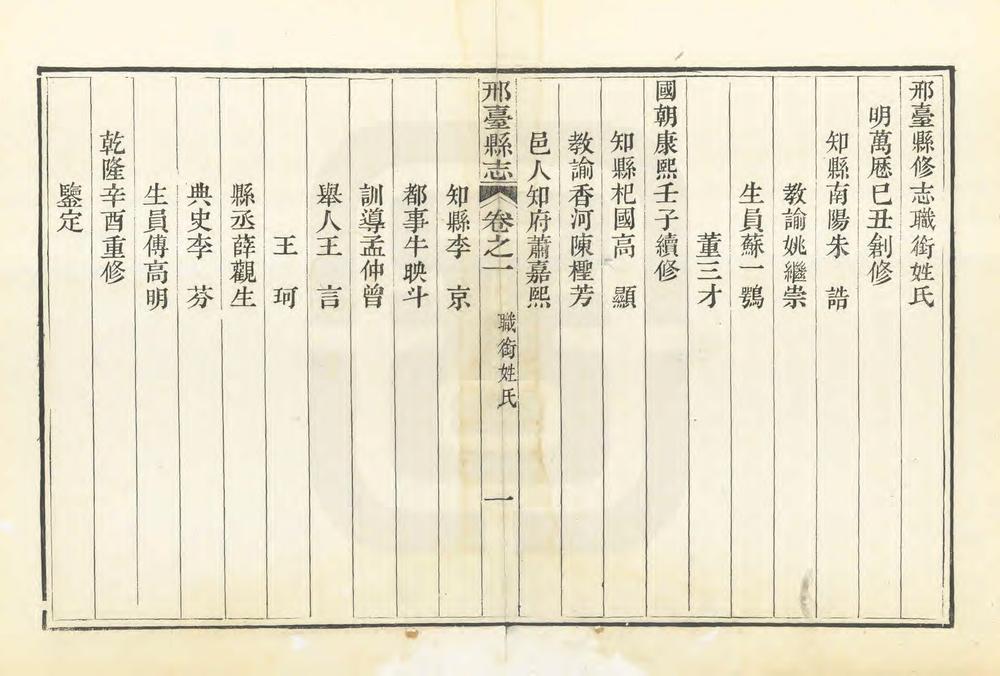 邢臺縣修志職銜姓氏
明萬厯己丑創修
知縣南陽朱　誥
教諭姚繼崇
生員蘇一鶚
董三才
國朝康熙壬子續修
知縣杞國高　顯
教諭香河陳㯸芳
邑人知府蕭嘉熙
邢臺縣志　卷之一　職銜姓氏　一
知縣李　京
都事牛映斗
訓導孟仲曾
舉人王　言
王　珂
縣丞薛觀生
典史李　芬
生員傅高明
乾隆辛酉重修
鑒定